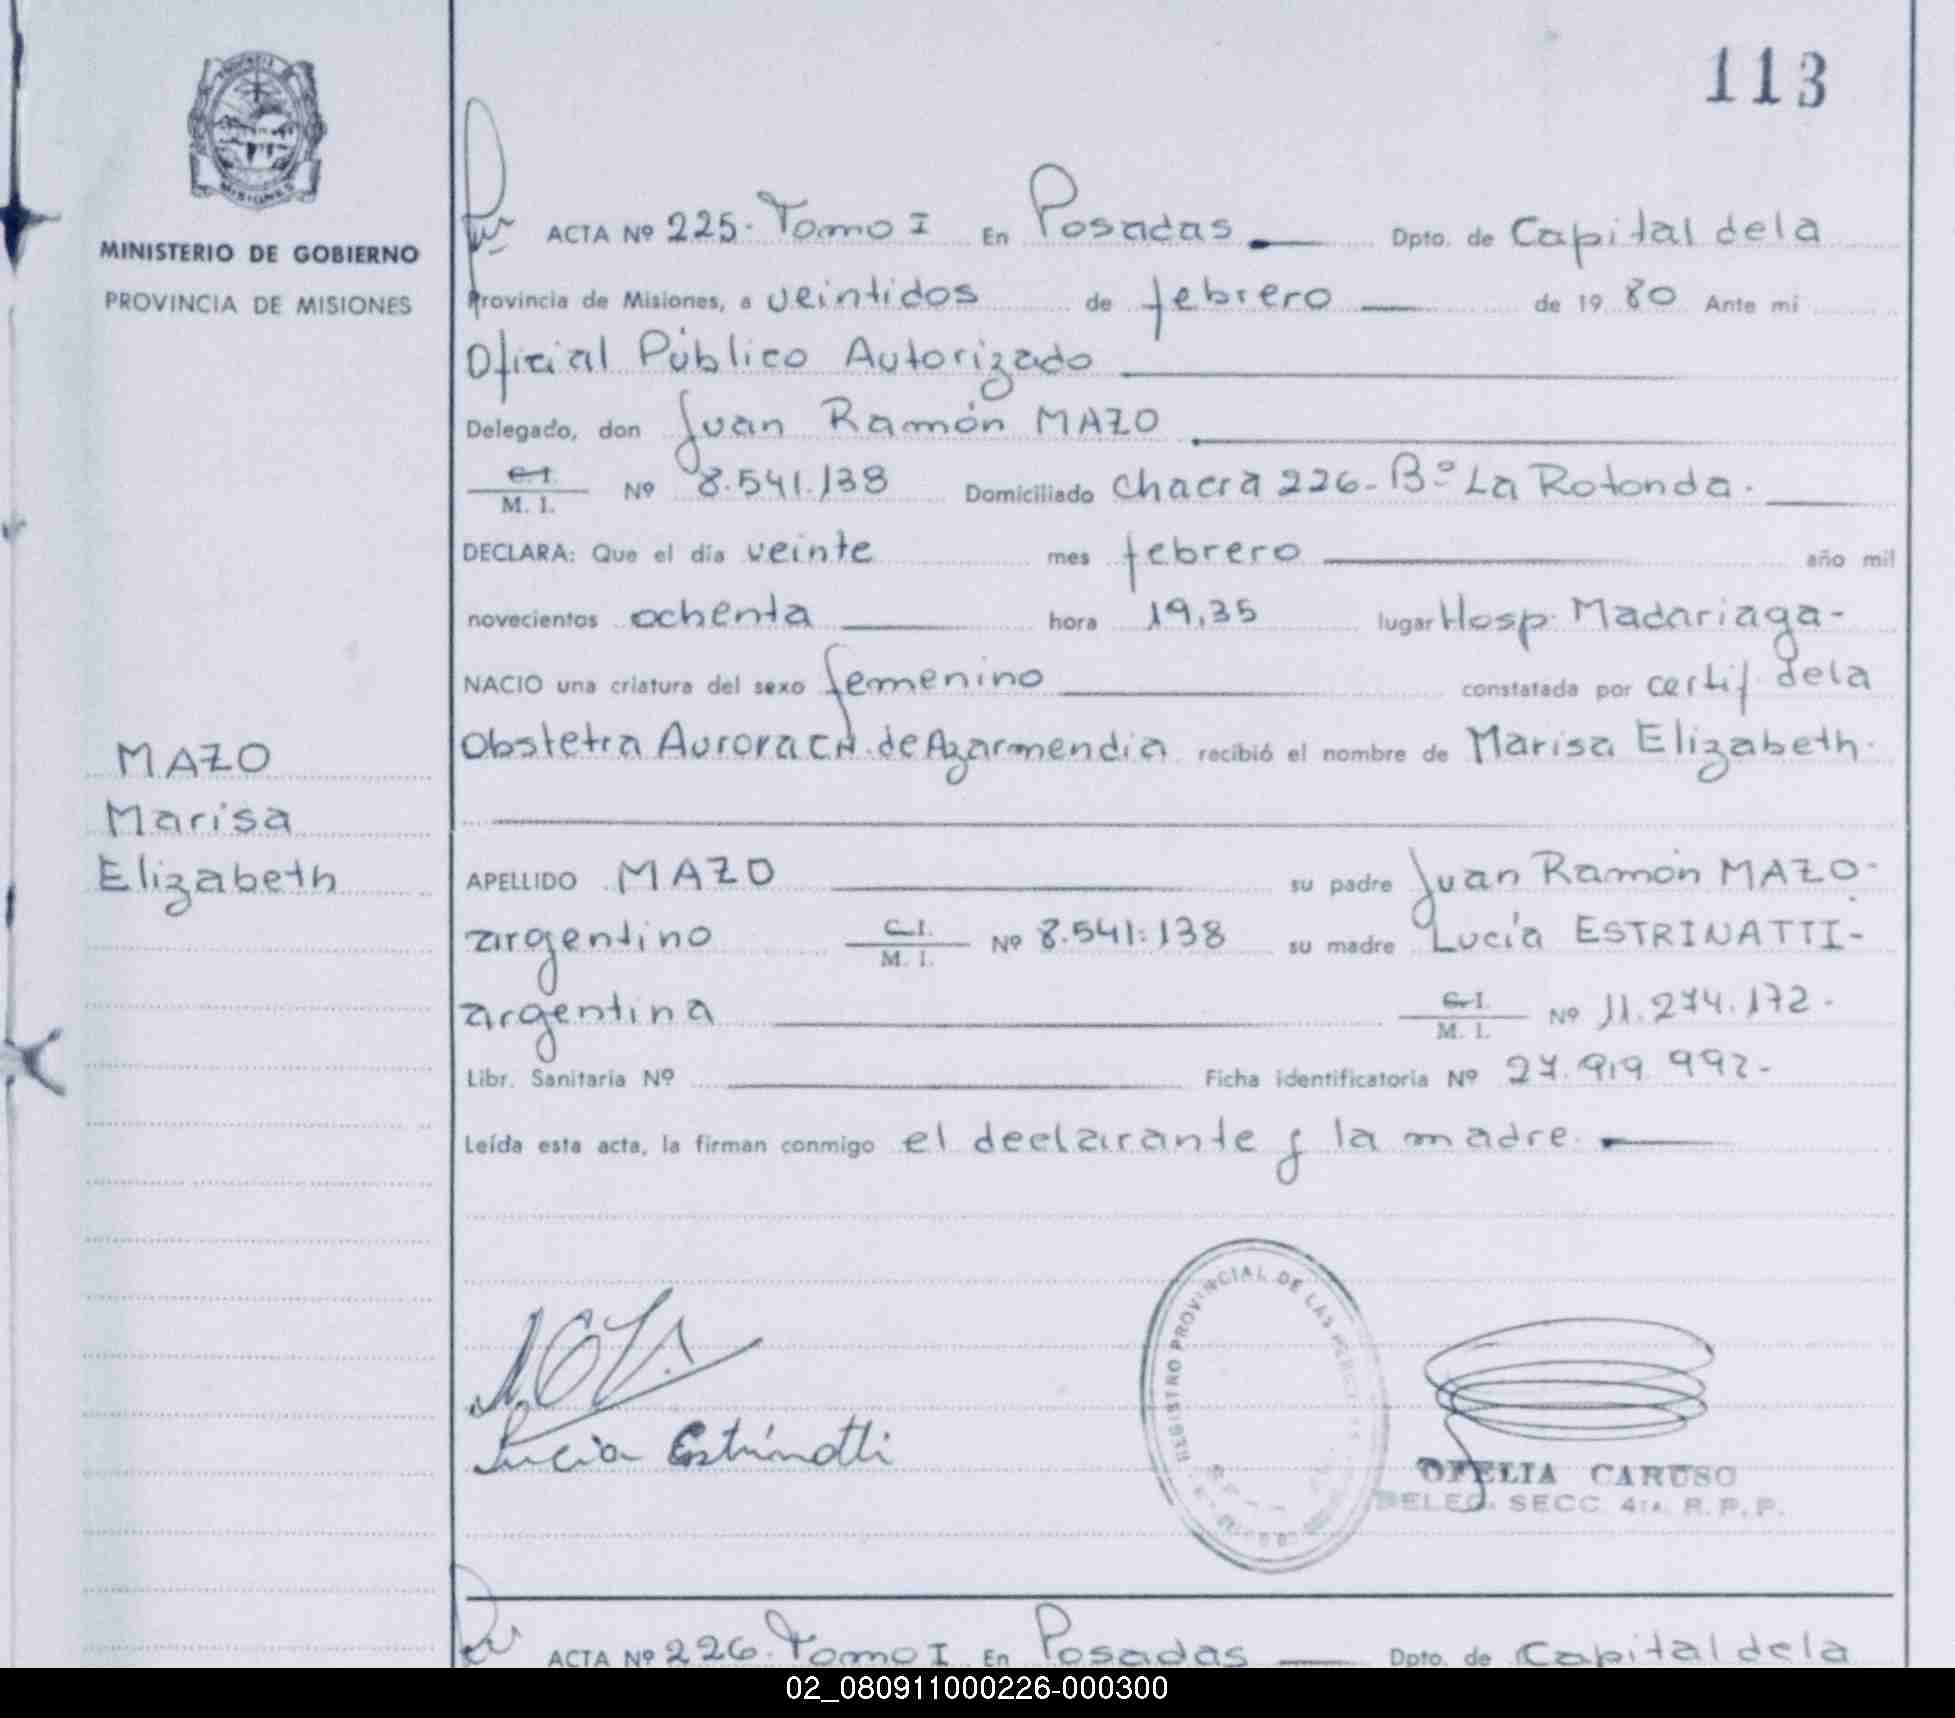 113
MINISTERIO DE GOBIERNO
PROVINCIA DE MISIONES
ACTA Nº 225. Tomo I En Posadas Dpto. de Capital de la
Provincia de Misiones, a veintidos de febrero de 19 80 Ante mi
Oficial Público Autorizado
Delegado, don Juan Ramón MAZO
C. I.
M. I. Nº 8.541.138 Domiciliado Chacra 226- Bº La Rotonda.
DECLARA: Que el día veinte mes febrero año mil
novecientos ochenta hora 19,35 lugar Hosp. Madariaga-
NACIO una criatura del sexo femenino constatada por certif de la
Obstetra Aurora CH. de Azarmendia recibió el nombre de Marisa Elizabeth.
MAZO
Marisa
Elizabeth
APELLIDO MAZO su padre Juan Ramón MAZO-
argentino C. I.
M. I. Nº 8.541.138 su madre Lucía ESTRINATTI-
argentina C. I.
M. I. Nº 11.274.172.
Libr. Sanitaria Nº Ficha identificatoria Nº 27.919.992-
Leída esta acta, la firman conmigo el declarante y la madre.
Lucia Estrinatti
REGISTRO PROVINCIAL DE LAS
OFELIA CARUSO
DELEG. SECC. 4TA. R. P. P.
ACTA Nº 226. Tomo I En Posadas Dpto. de Capital de la
02_080911000226-000300